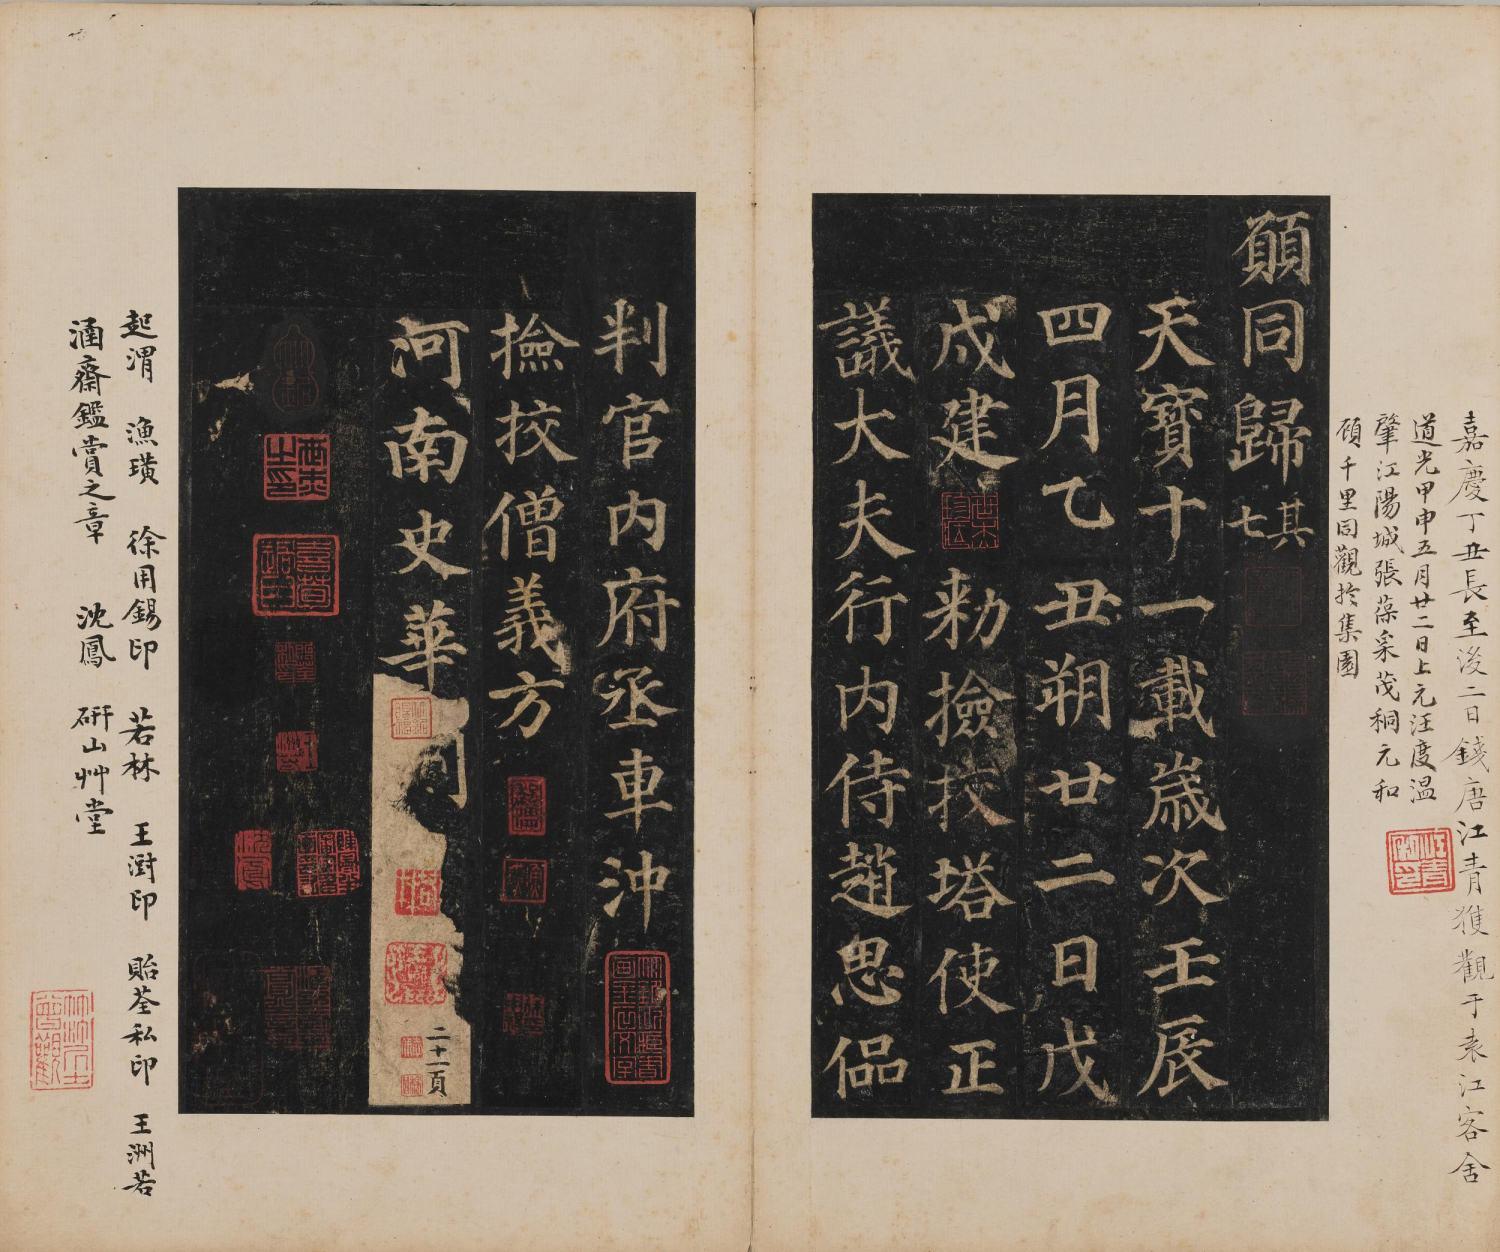 嘉慶丁丑長至後二日錢唐江青獲觀于袁江客舍
道光甲申五月廿二日上元汪度溫
肇江陽城張葆采茂桐元和
顧千里同觀於集園
願同歸其七
天寶十一載歲次壬辰
四月乙丑朔廿二日戊
戍建勑撿挍塔使正
議大夫行內侍趙思侃
判官內府丞車沖
撿挍僧義方
河南史華刻
二十一頁
起渭 漁璜 徐用錫印 若林 王澍印 貽荃私印 王洲若
涵齋鑑賞之章 沈鳳 研山艸堂